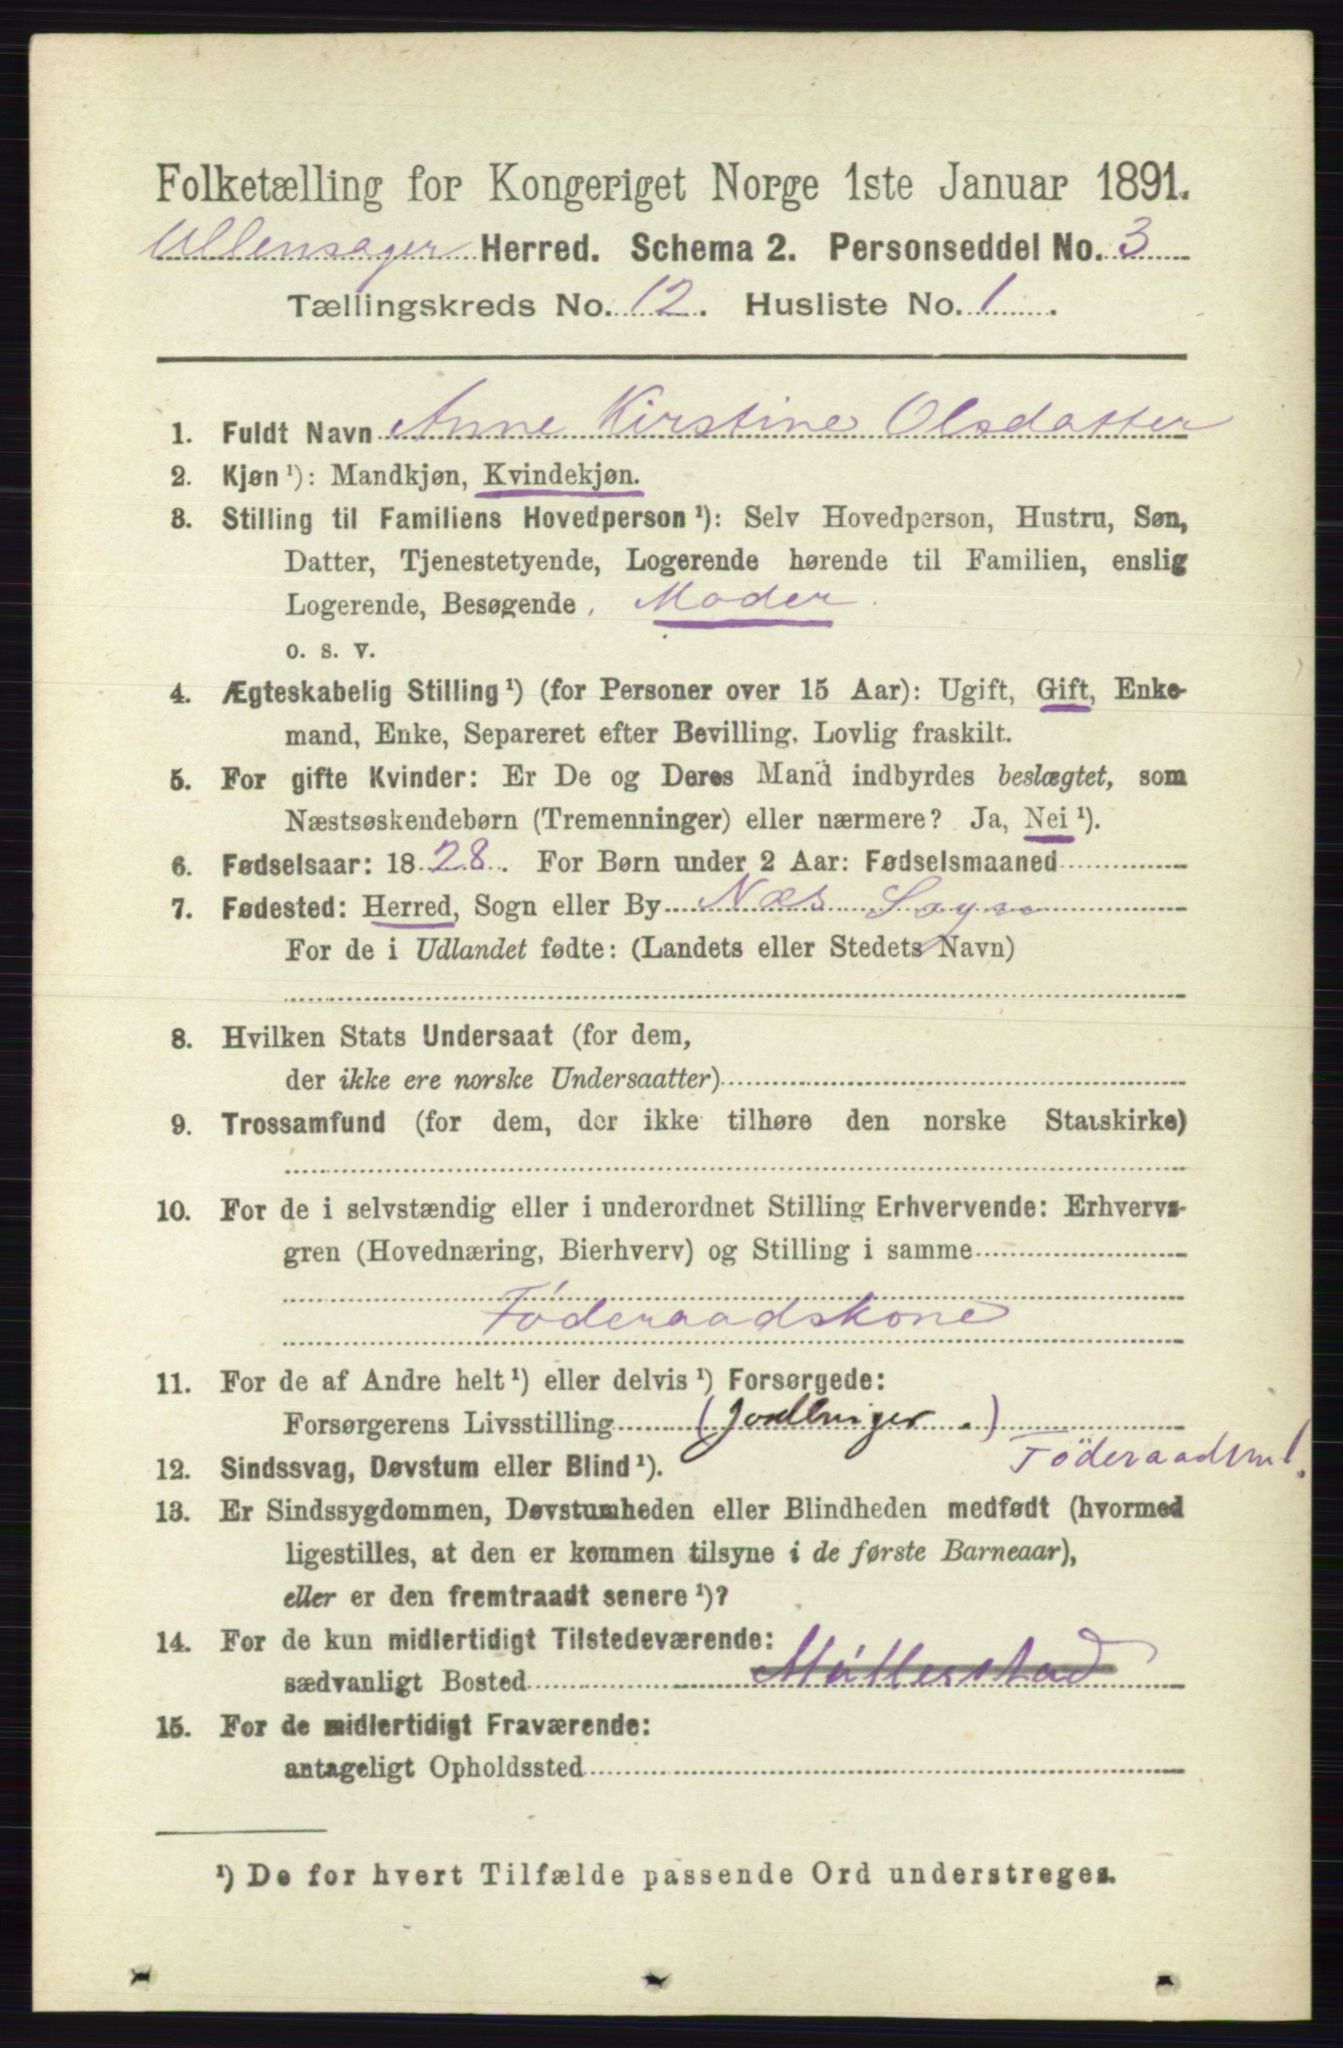 Folketælling for Kongeriget Norge 1ste Januar 1891.
Ullensager Herred. Schema 2. Personseddel No. 3
Tællingskreds No. 12. Husliste No. 1.
1. Fuldt Navn Anne Kirstine Olsdatter
2. Kjøn ¹): Mandkjøn, Kvindekjøn.
3. Stilling til Familiens Hovedperson ¹): Selv Hovedperson, Hustru, Søn,
Datter, Tjenestetyende, Logerende hørende til Familien, enslig
Logerende, Besøgende, Moder.
o. s. v.
4. Ægteskabelig Stilling ¹) (for Personer over 15 Aar): Ugift, Gift, Enke-
mand, Enke, Separeret efter Bevilling. Lovlig fraskilt.
5. For gifte Kvinder: Er De og Deres Mand indbyrdes beslægtet, som
Næstsøskendebørn (Tremenninger) eller nærmere? Ja, Nei ¹).
6. Fødselsaar: 1828. For Børn under 2 Aar: Fødselsmaaned
7. Fødested: Herred, Sogn eller By Næs Sogn
For de i Udlandet fødte: (Landets eller Stedets Navn)
8. Hvilken Stats Undersaat (for dem,
der ikke ere norske Undersaatter)
9. Trossamfund (for dem, der ikke tilhøre den norske Statskirke)
10. For de i selvstændig eller i underordnet Stilling Erhvervende: Erhvervs-
gren (Hovednæring, Bierhverv) og Stilling i samme
Föderaadskone
11. For de af Andre helt ¹) eller delvis ¹) Forsørgede:
Forsørgerens Livsstilling (Jordbruger.)
Föderaadsm.
12. Sindssvag, Døvstum eller Blind ¹).
13. Er Sindssygdommen, Døvstumheden eller Blindheden medfødt (hvormed
ligestilles, at den er kommen tilsyne i de første Barneaar),
eller er den fremtraadt senere ¹)?
14. For de kun midlertidigt Tilstedeværende:
sædvanligt Bosted Møllerstad
15. For de midlertidigt Fraværende:
antageligt Opholdssted
¹) De for hvert Tilfælde passende Ord understreges.